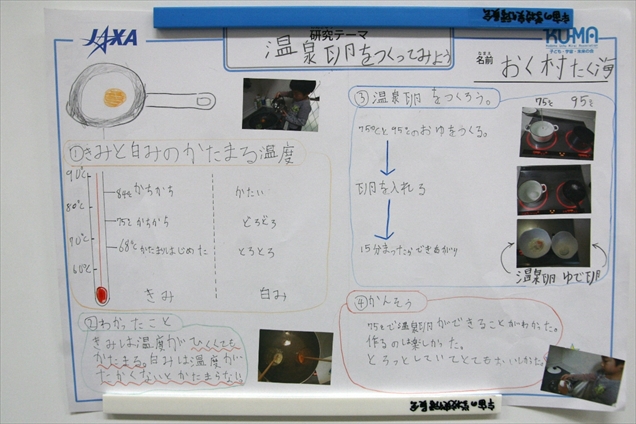 JAXA
研究テーマ
温泉卵をつくってみよう
KU-MA
名前
おく村たく海
①きみと白みのかたまる温度
90℃
80℃
70℃
60℃
84℃かちかち
かたい
75℃かちかち
どろどろ
68℃かたまりはじめた
とろとろ
きみ
白み
②わかったこと
きみは温度がひくくても
かたまる。白みは温度が
たかくないとかたまらない。
③温泉卵をつくろう。
75℃
95℃
75℃と95℃のおゆをつくる。
卵を入れる
15分まったらできあがり
温泉卵
ゆで卵
④かんそう
75℃で温泉卵ができることがわかった。
作るのは楽しかった。
とろっとしていてとてもおいしかった。